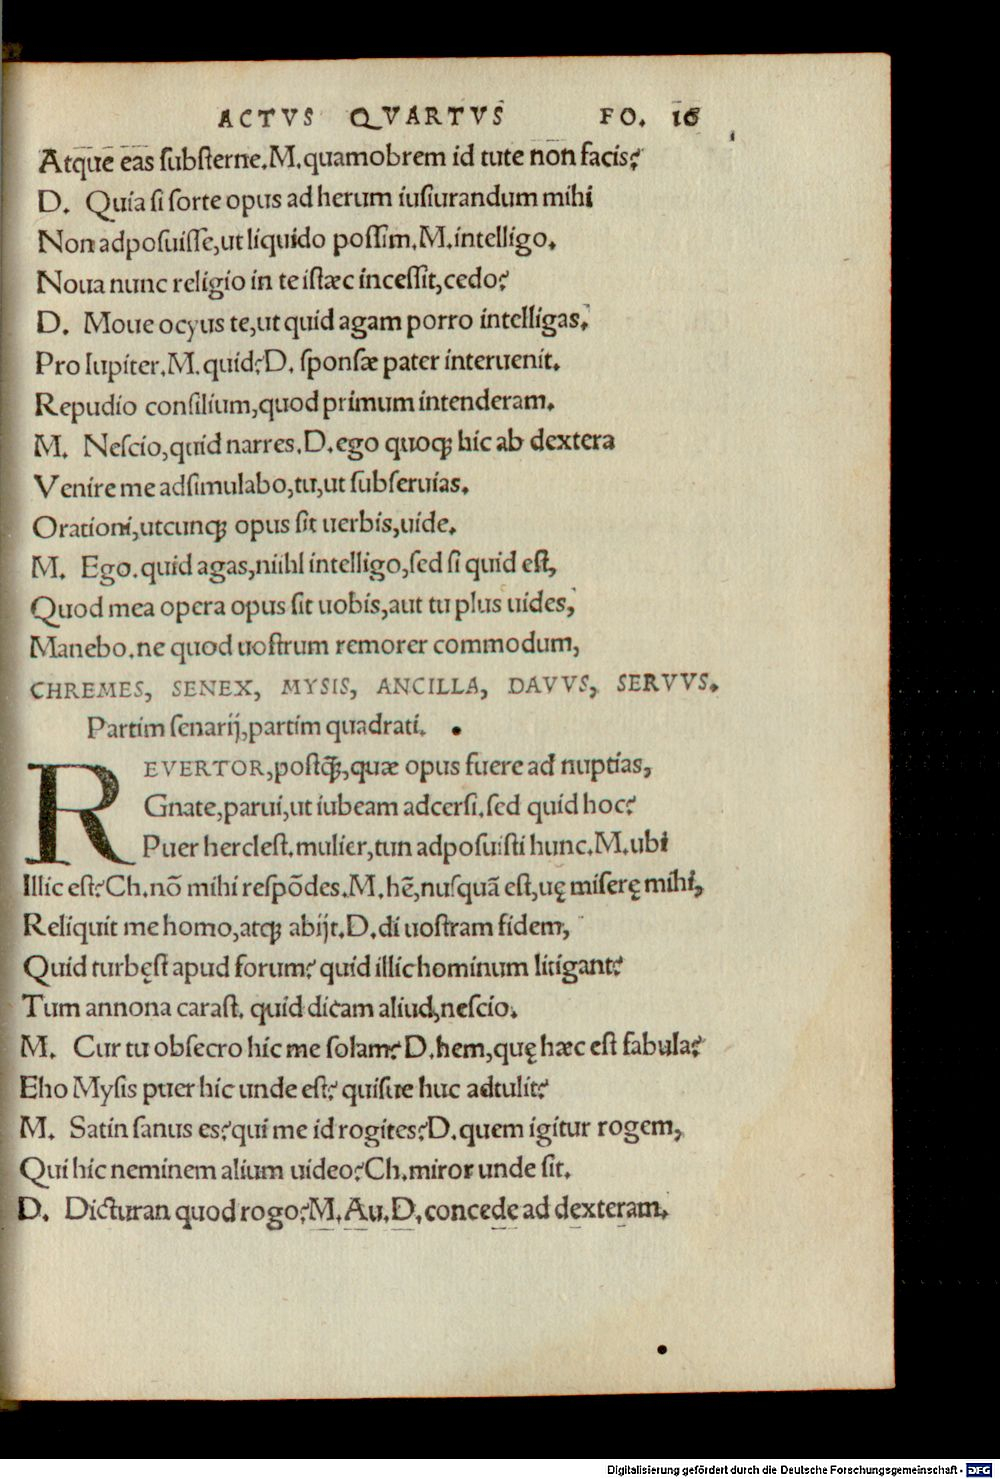 ACTVS QVARTVS FO. 16
Atque eas substerne.M.quamobrem id tute non facis?
D. Quia si sorte opus ad herum iusiurandum mihi
Non adposuisse,ut liquido possim.M.intelligo.
Noua nunc religio in te istæc incessit,cedo?
D. Moue ocyus te,ut quid agam porro intelligas.
Pro Iupiter.M.quid?D. sponsæ pater interuenit.
Repudio consilium,quod primum intenderam.
M. Nescio,quid narres.D.ego quoqꝫ hic ab dextera
Venire me adsimulabo,tu,ut subseruias.
Orationi,utcunqꝫ opus sit uerbis,uide.
M. Ego.quid agas,niihl intelligo,sed si quid est,
Quod mea opera opus sit uobis,aut tu plus uides,
Manebo.ne quod uostrum remorer commodum,
CHREMES, SENEX, MYSIS, ANCILLA, DAVVS, SERVVS.
Partim senarij,partim quadrati.
REVERTOR,postq̃,quæ opus fuere ad nuptias,
Gnate,parui,ut iubeam adcersi.sed quid hoc?
Puer herclest.mulier,tun adposuisti hunc.M.ubi
Illic est?Ch.nõ mihi respõdes.M.hẽ,nusquã est,uę miserę mihi,
Reliquit me homo,atqꝫ abijt.D.di uostram fidem,
Quid turbęst apud forum?quid illic hominum litigant?
Tum annona carast. quid dicam aliud,nescio.
M. Cur tu obsecro hic me solam?D.hem,quę hæc est fabula?
Eho Mysis puer hic unde est?quisue huc adtulit?
M. Satin sanus es?qui me id rogites?D.quem igitur rogem,
Qui hic neminem alium uideo?Ch.miror unde sit.
D. Dicturan quod rogo?M.Au.D.concede ad dexteram.
Digitalisierung gefördert durch die Deutsche Forschungsgemeinschaft - DFG